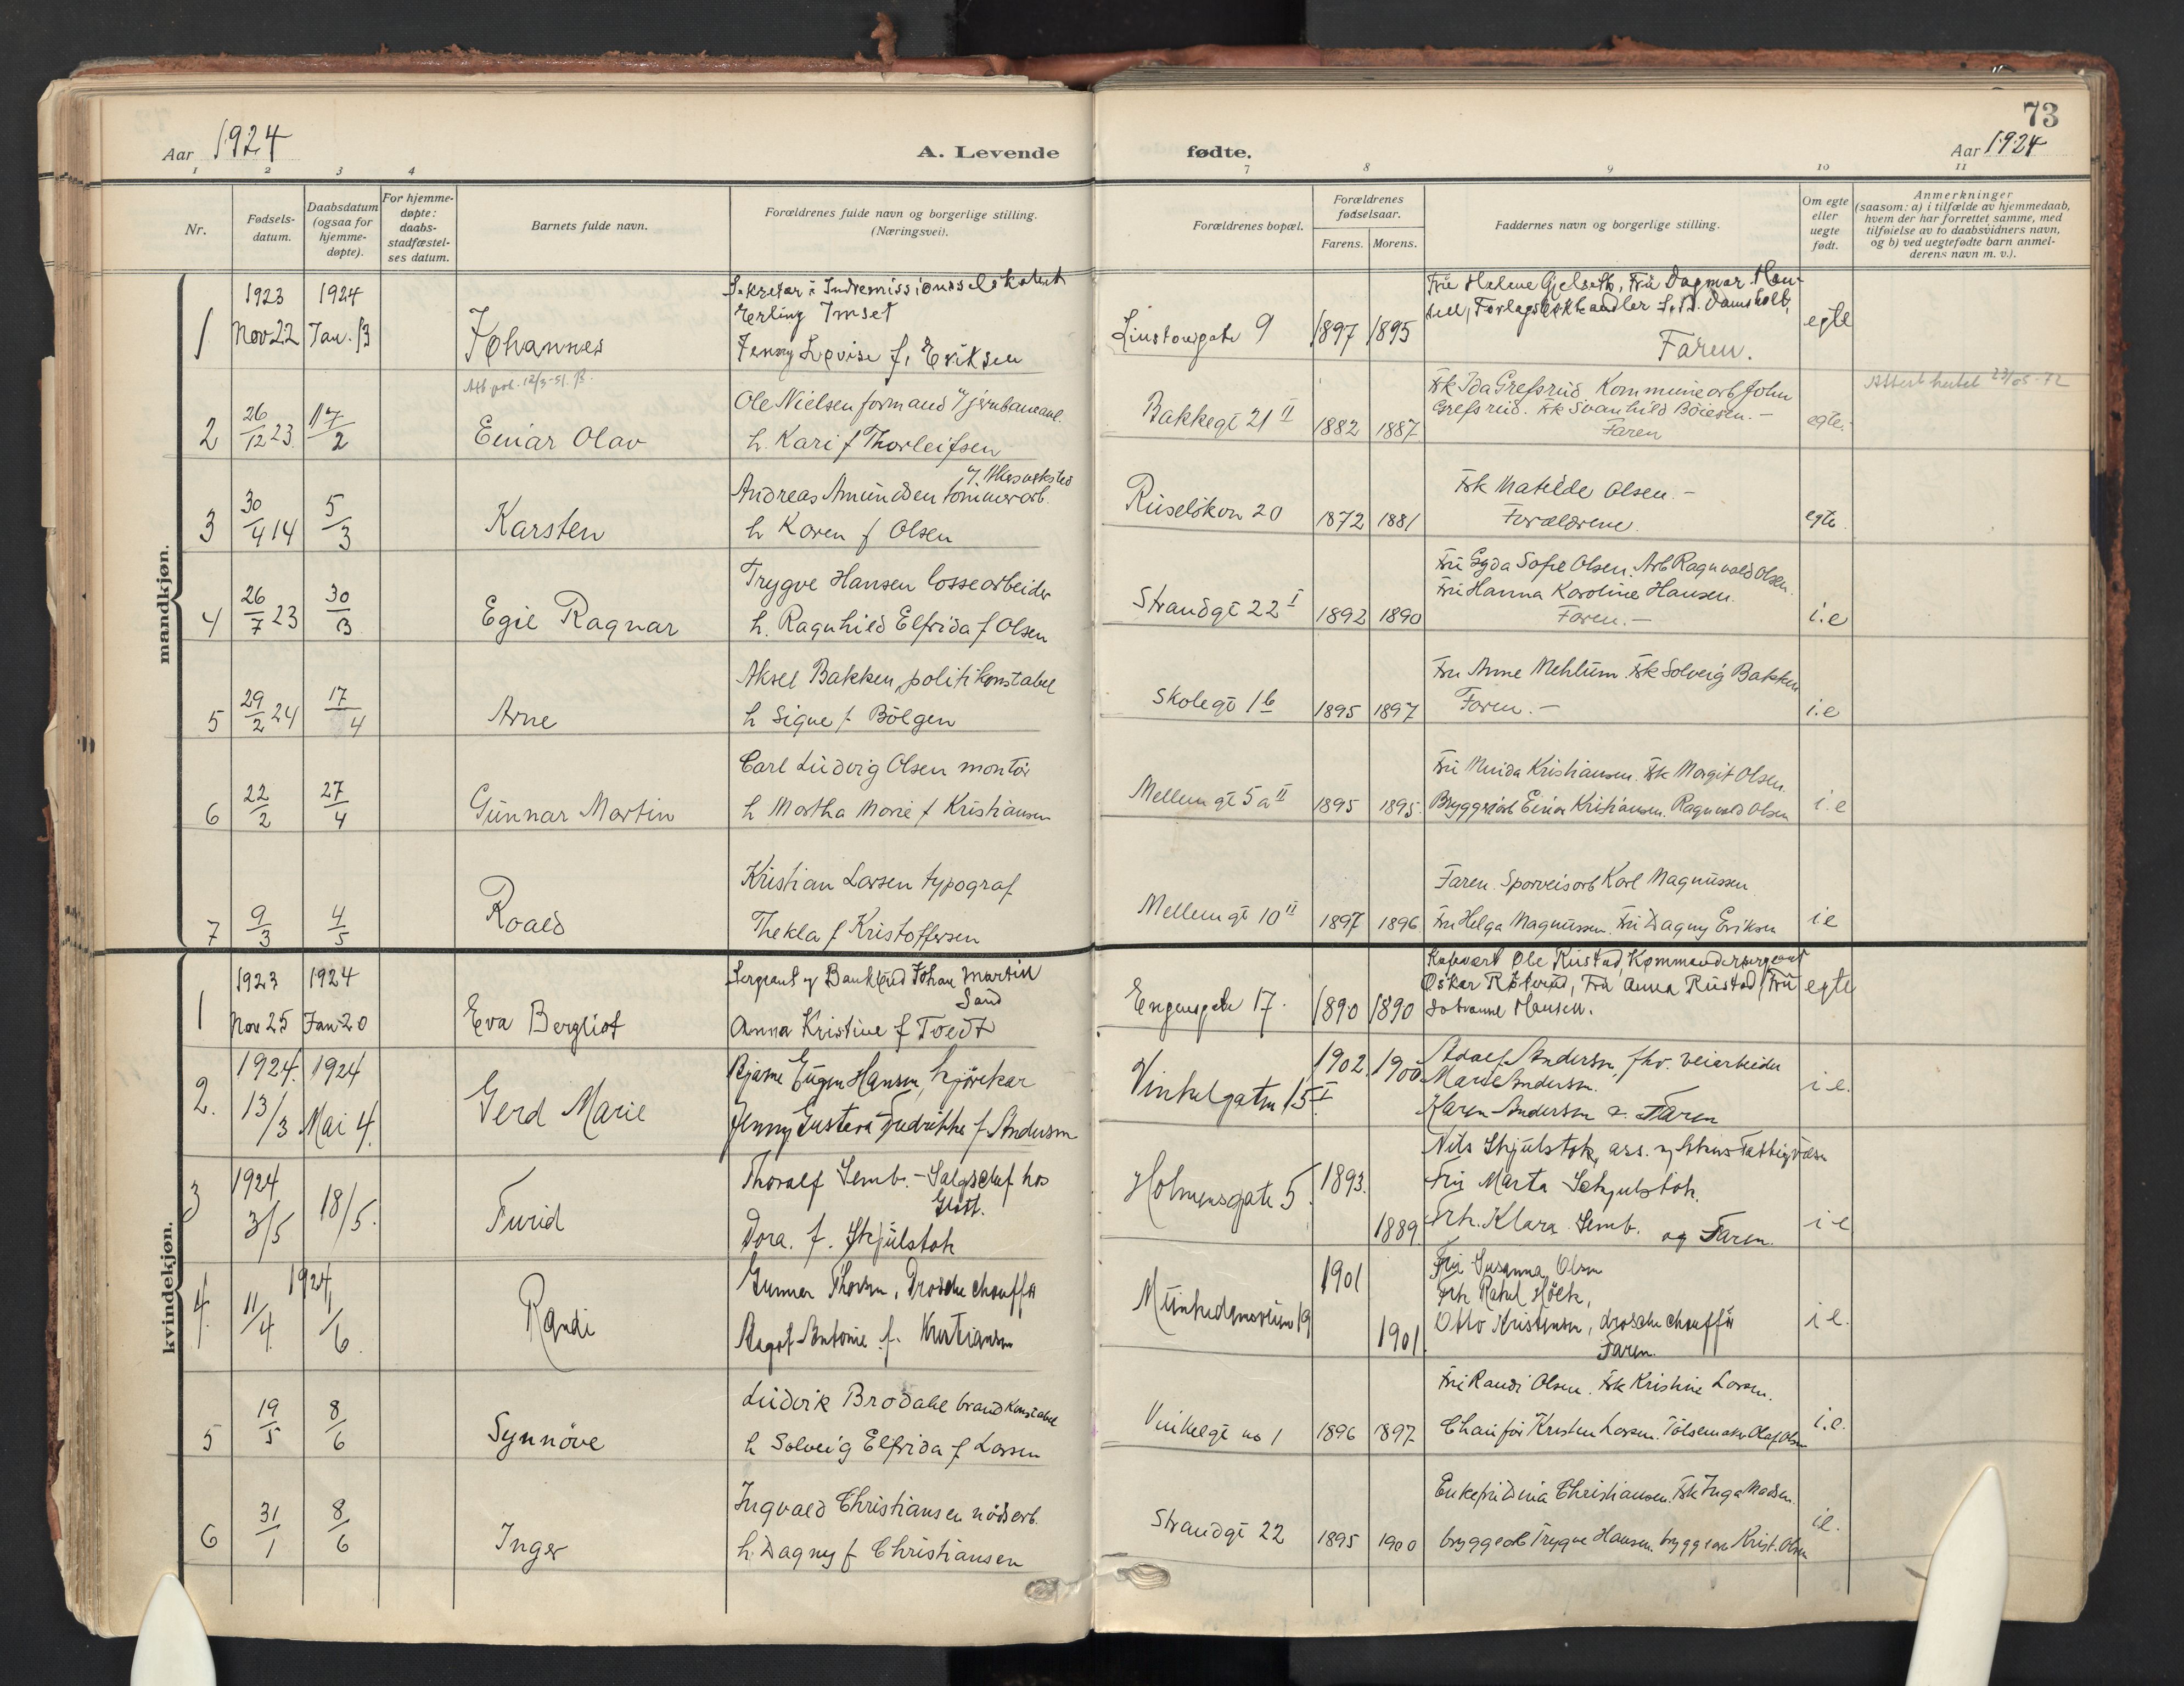 73
Aar 1924
A. Levende fødte.
Aar 1924
1 2 3 4 7 8 9 10 11
Nr.
Fødsels-
datum.
Daabsdatum
(ogsaa for
hjemme-
døpte).
For hjemme-
døpte:
daabs-
stadfæstel-
ses datum.
Barnets fulde navn.
Forældrenes fulde navn og borgerlige stilling.
(Næringsvei).
Forældrenes bopæl.
Forældrenes
fødselsaar.
Farens. Morens.
Faddernes navn og borgerlige stilling.
Om egte
eller
uegte
født.
Anmerkninger
(saasom: a) i tilfælde av hjemmedaab,
hvem der har forrettet samme, med
tilføielse av to daabsvidners navn,
og b) ved uegtefødte barn anmel-
derens navn m. v.).
mandkjøn.
1
1923
Nov 22
1924
Jan. 13
Johannes
Sekretær i Indremissionsselskabet
Erling Imset
Jenny Lovise f. Eriksen
9
1897 1895
Fru Helene Gjelseth, Fru Dagmar Han-
sen, Forlagsbokhandler
Faren.
egte
2
26/12 23
17/2
Einar Olav
Ole Nielsen formand v/ jernbaneanl.
h. Kari f Thorleifsen
Bakkegt 21 II
1882 1887
Frk Ida Grefsrud Kommunearb John
Grefsrud. Frk Svanhild Böiesen. -
Faren
egte.
3
30/4 14
5/3
Karsten
v. Akers
Andreas Amundsen tömmerarb.
h Karen f Olsen
Ruselökvn 20
1872 1881
Frk Matilde Olsen. -
Forældrene.
egte
4
26/7 23
30/3
Egil Ragnar
Trygve Hansen lossearbeider
h. Ragnhild Elfrida f Olsen
Strandgt 22 I
1892 1890
Fru Gyda Sofie Olsen. Arb Ragnvald Olsen.
Fru Hanna Karoline Hansen.
Faren. -
i.e
5
29/2 24
17/4
Arne
Aksel Bakken, politikonstabel
h Signe f. Bölgen
Skolegt 1 b
1895 1897
Fru Anne Mehlum. Frk Solveig Bakken
Faren. -
i.e
6
22/2
27/4
Gunnar Martin
Carl Ludvig Olsen montör
h Martha Marie f Kristiansen
Mellemgt 5 a II
1895 1895.
Fru Kristiansen. Frk Margit Olsen.
Bryggearb Einar Kristiansen. Ragnvald Olsen
i.e
7
9/3
4/5
Roald
Kristian Larsen typograf
Thekla f Kristoffersen
Mellemgt 10 II
1897 1896
Faren. Sporveisarb Karl Magnussen
Fru Helga Magnussen. Fru Dagny Eriksen
ie
kvindekjøn.
1
1923
Nov 25
1924
Jan 20
Eva Bergliot
Sergeant og Bankbud Johan Martin
Sand
Anna Kristine f Toedt
Engensgate 17.
1890 1890
Ole Rustad, Kommandersergeant
Oskar Fru Anna Rustad, Fru
Hansen.
egte
2.
1924.
13/3
1924
Mai 4.
Gerd Marie
Bjarne Eugen Hansen, kjörekar
Jenny Gustava Fredrikke f Andersen
Vinkelgaten 15 I
1902. 1900
Adolf Andersen, fhv. veiarbeider
Marie Andersen.
Karen Andersen & Faren
i e.
3
1924
3/5
18/5.
Turid
Thoralf Semb. - Salgschef hos
Dora. f. Skjulstok
Holmensgate 5.
1893.
1889
Nils Skjulstok, ass. v/ Akers Fattigvæsen
Fru Marta Schjulstok.
Frk. Klara Semb. og Faren.
i e
4.
1924
11/4
1/6.
Randi
Gunnar Thorsen, Drosche chauffør
Aagot Antonie f. Kristiansen
Munkedamsveien 19
1901
1901.
Fru Susanna Olsen
Frk Rakel Höck,
Otto Kristensen, drosche chauffør
Faren.
i e.
5
19/5
8/6
Synnöve
Ludvik Brodahl brandkonstabel
h Solveig Elfrida f Larsen
Vinkelgt no 1
1896 1897
Fru Randi Olsen. Frk Kristine Larsen.
Chauffør Kristen Larsen. Pölsemaker Olaf Olsen
i.e.
6
31/1
8/6
Inger
Ingvald Christiansen nödsarb.
h. Dagny f Christiansen
Strandgt 22
1895 1900
Enkefru Dina Christiansen. Frk Inga Madsen.
bryggearb Trygve Hansen. bryggearb Krist. Olsen
ie.